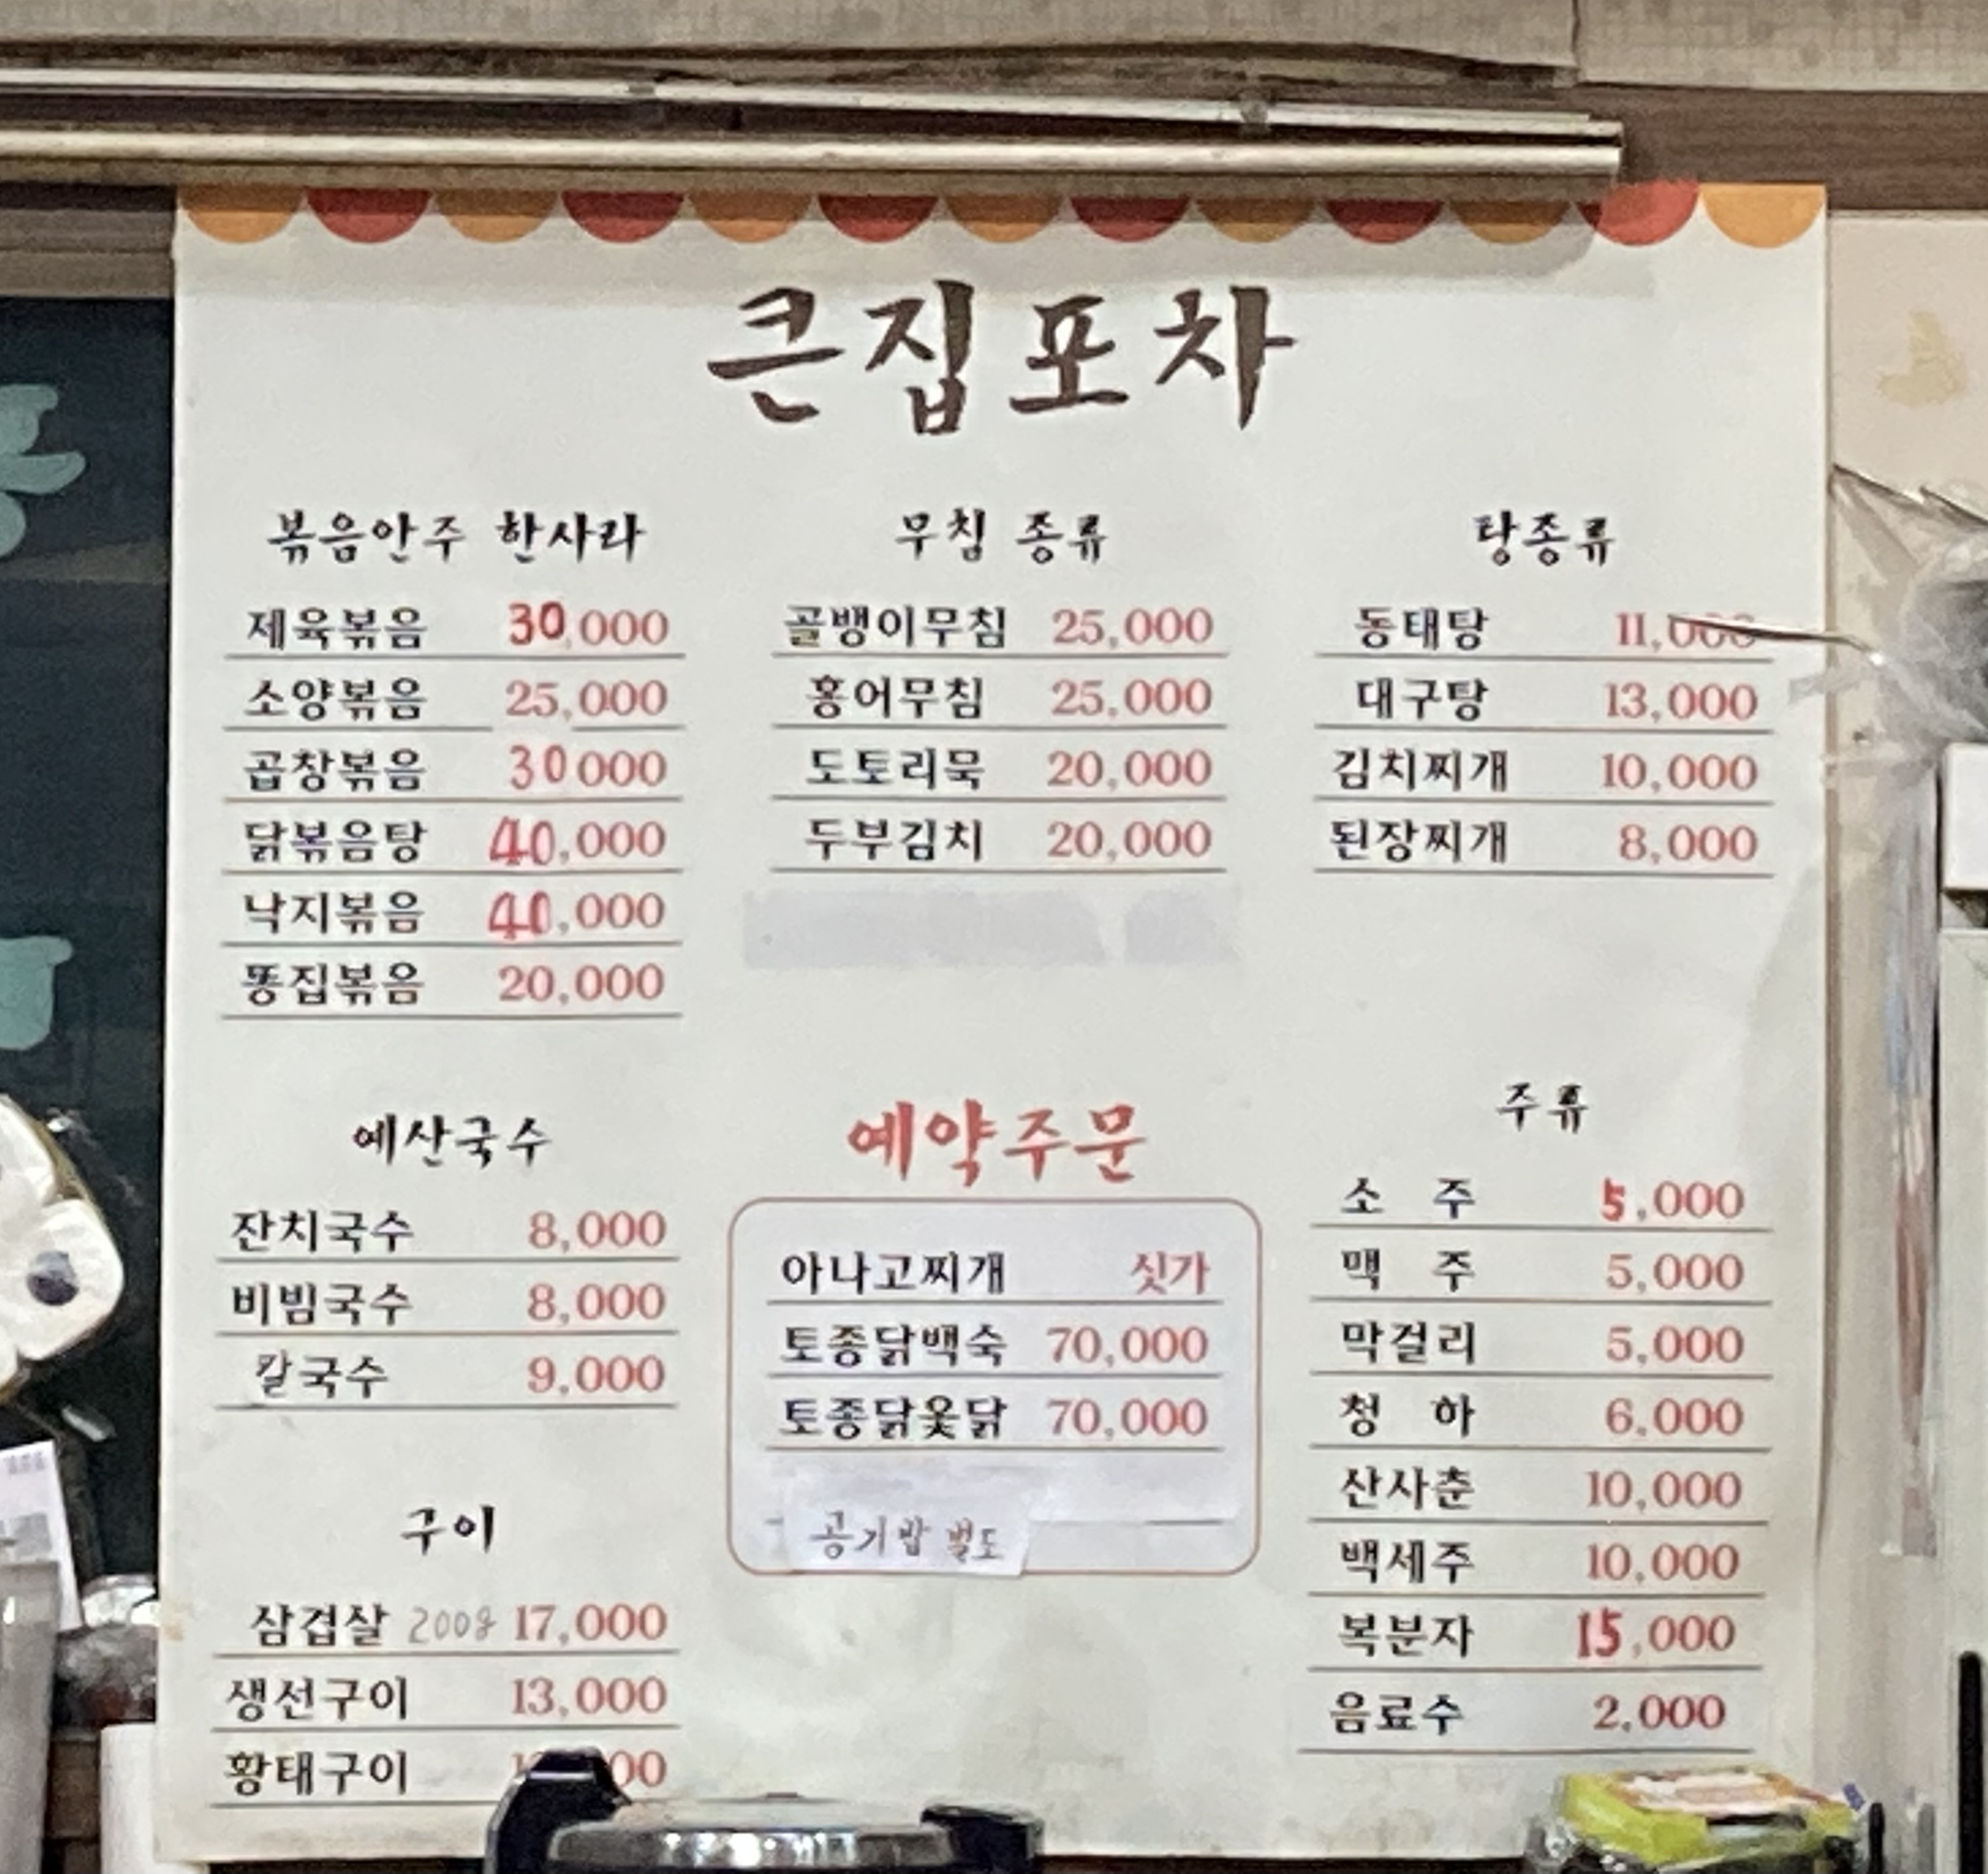 큰집포차
볶음안주 한사라
제육볶음 30,000
소양볶음 25,000
곱창볶음 30000
닭볶음탕 40,000
낙지볶음 40,000
똥집볶음 20,000
무침 종류
골뱅이무침 25,000
홍어무침 25,000
도토리묵 20,000
두부김치 20,000
탕종류
동태탕 11,000
대구탕 13,000
김치찌개 10,000
된장찌개 8,000
예산국수
잔치국수 8,000
비빔국수 8,000
칼국수 9,000
예약주문
아나고찌개 싯가
토종닭백숙 70,000
토종닭옻닭 70,000
공기밥 별도
주류
소 주 5,000
맥 주 5,000
막걸리 5,000
청 하 6,000
산사춘 10,000
백세주 10,000
복분자 15,000
음료수 2,000
구이
삼겹살 200g 17,000
생선구이 13,000
황태구이